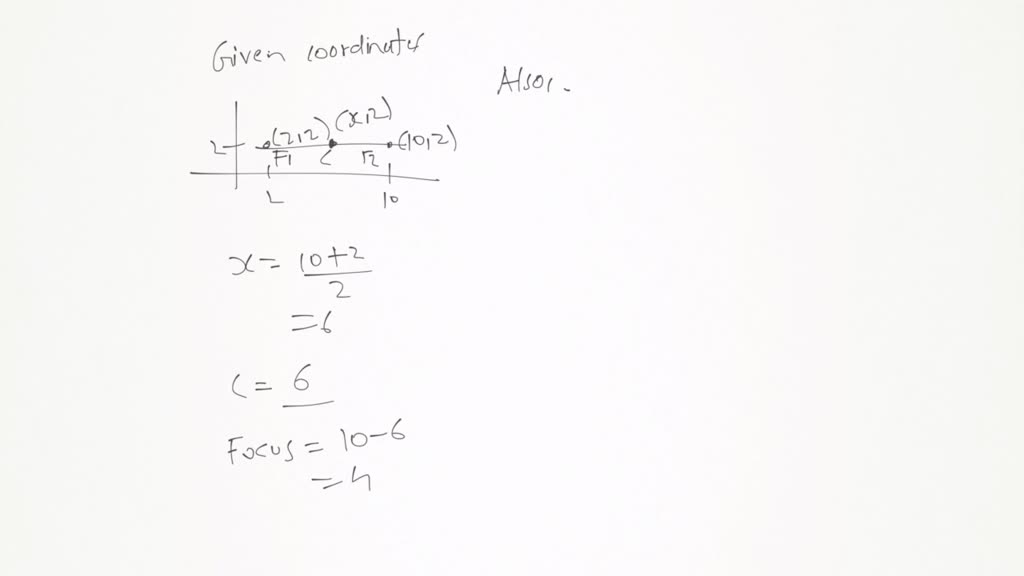 Given coordinates
(2,2) (x,2)
2 (10,2)
F1 C F2
2 10
x = 10+2
2
= 6
C = 6
Focus = 10-6
= 4
Also.